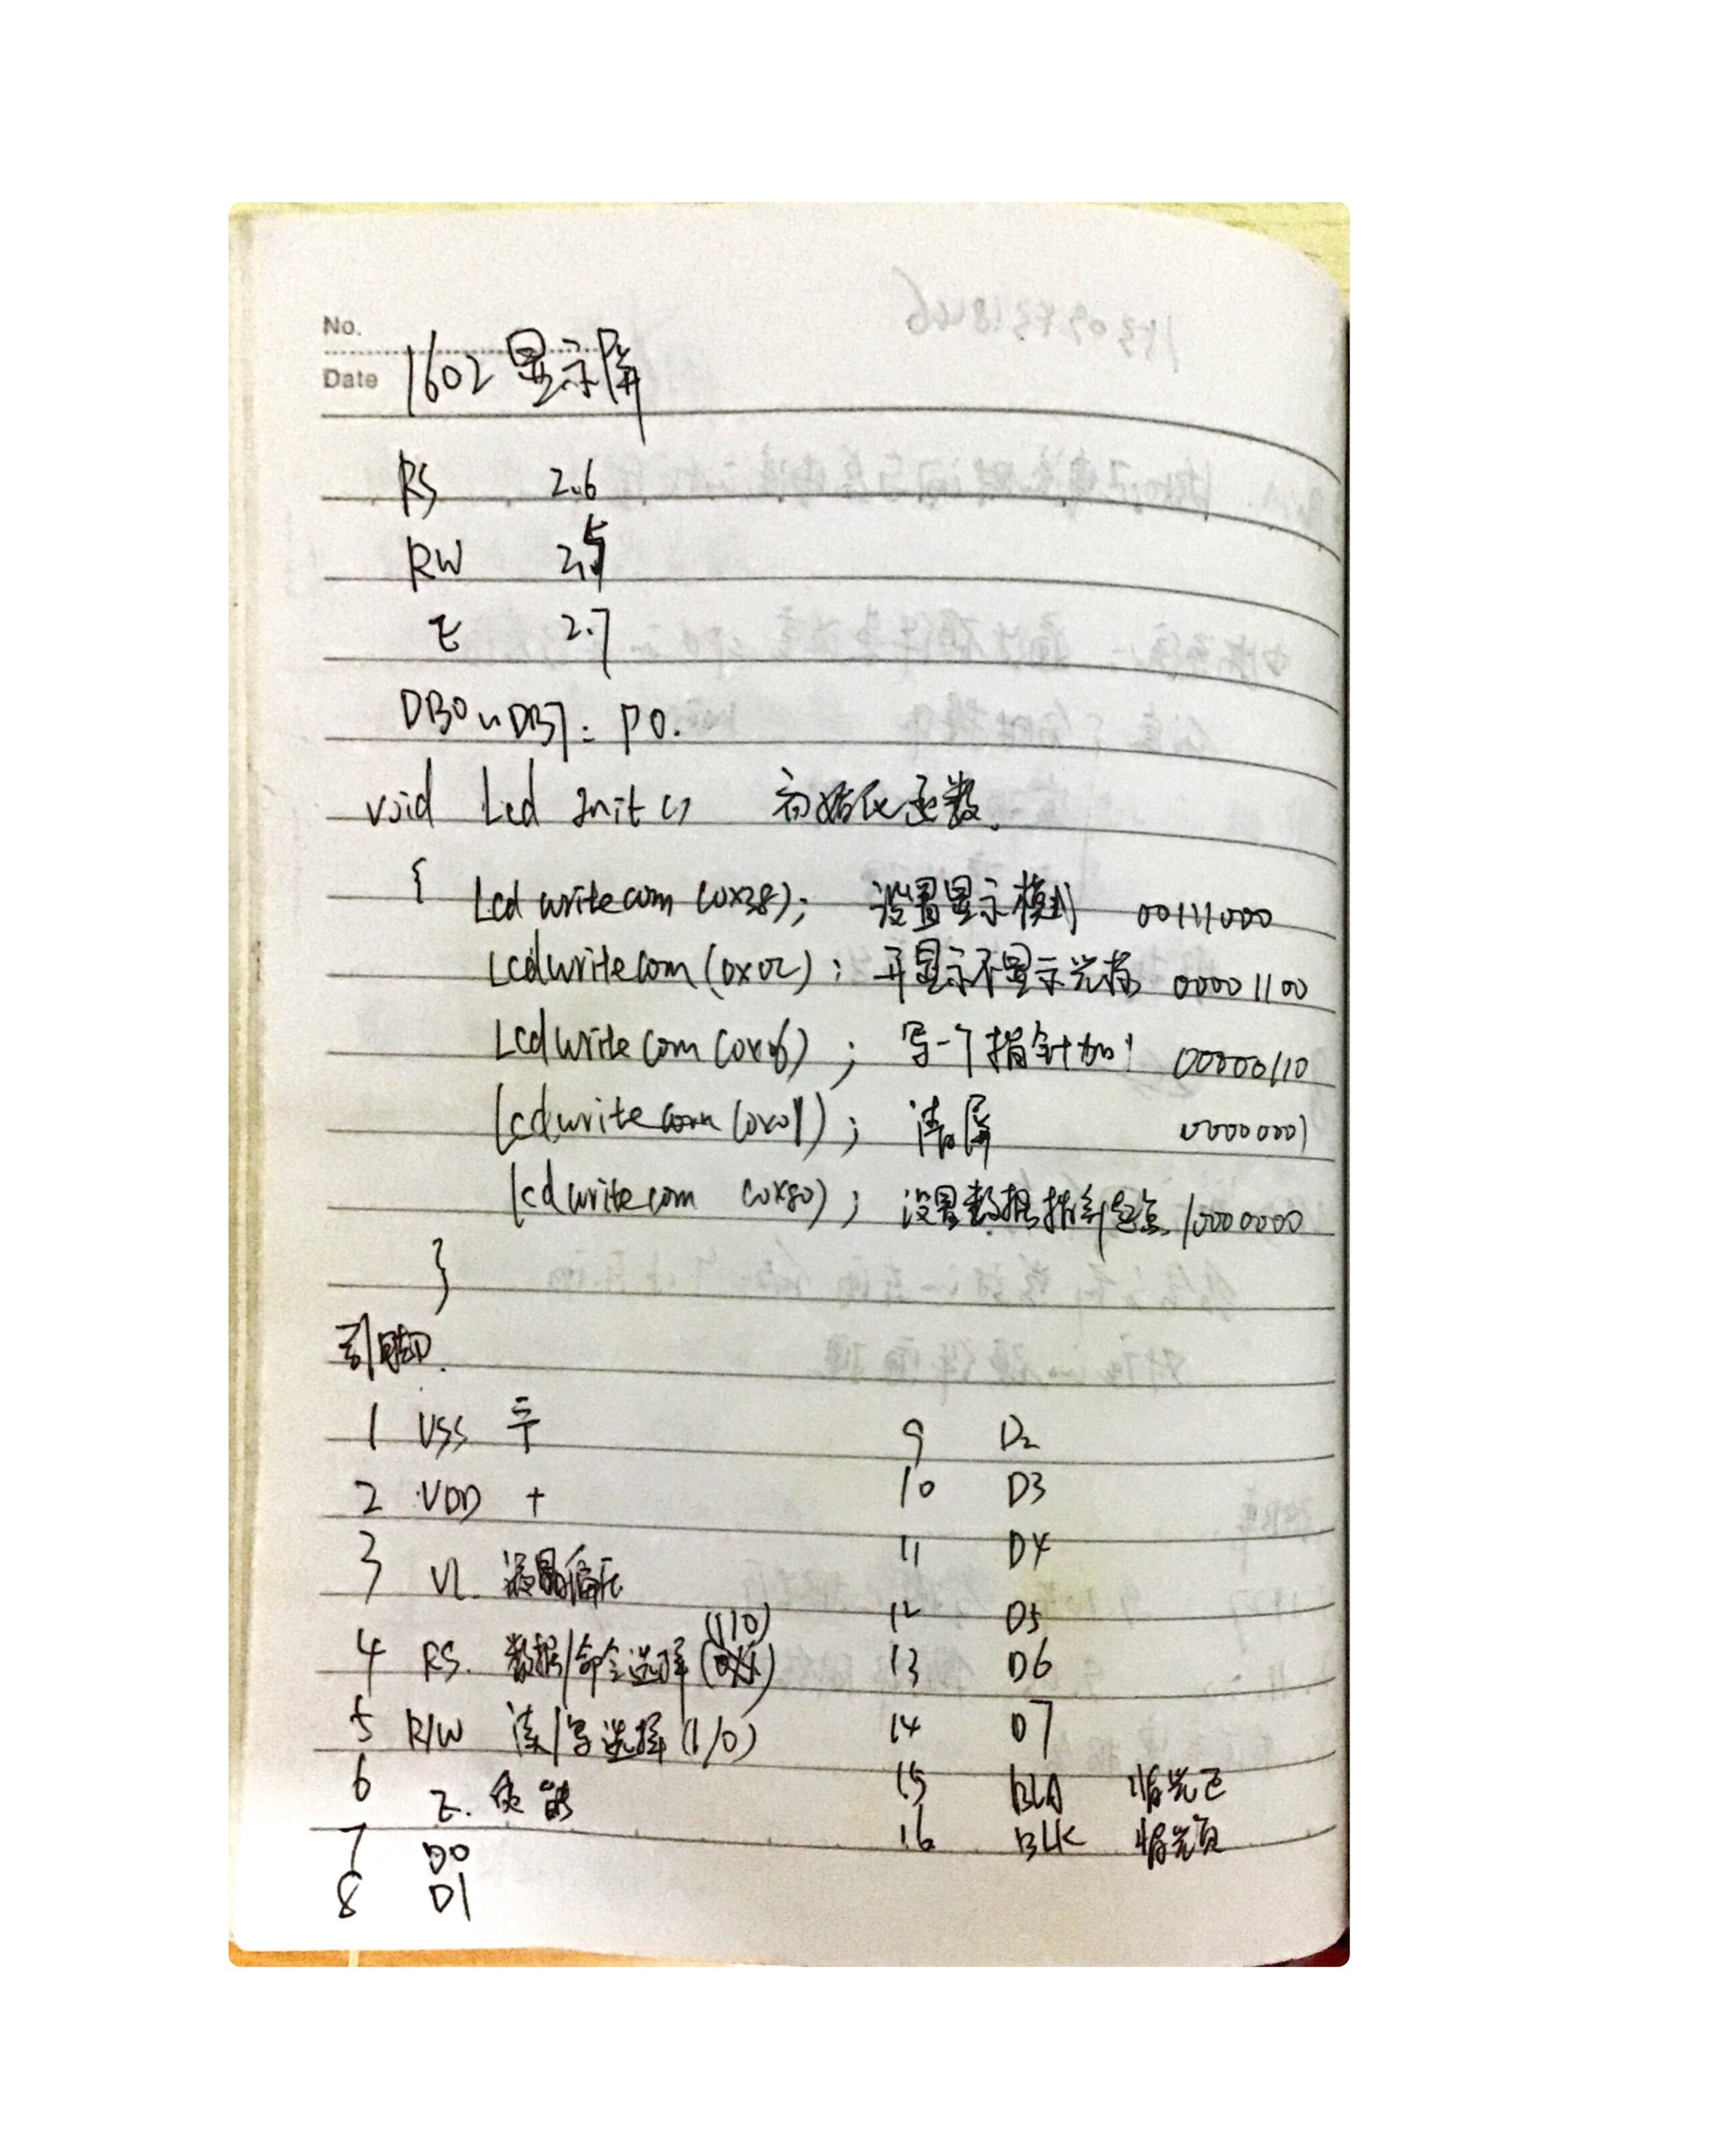 No.
Date 1602 显示屏
RS 2.6
RW 2.5
E 2.7
DB0~DB7: P0.
void Lcd Init () 初始化函数.
{
Lcd write com (0x38); 设置显示模式 00111000
Lcd write com (0x0c); 开显示不显示光标 00001100
Lcd write com (0x06); 写一个指针加1 00000110
Lcd write com (0x01); 清屏 00000001
Lcd write com (0x80); 设置数据指针起点 10000000
}
引脚.
1 VSS
2 VDD +
3 VL. 液晶偏压
(1/0)
4 RS. 数据/命令选择
5 R/W 读/写选择 (1/0)
6 E. 使能
7 D0
8 D1
9 D2
10 D3
11 D4
12 D5
13 D6
14 D7
15 BLA 背光正
16 BLK 背光负